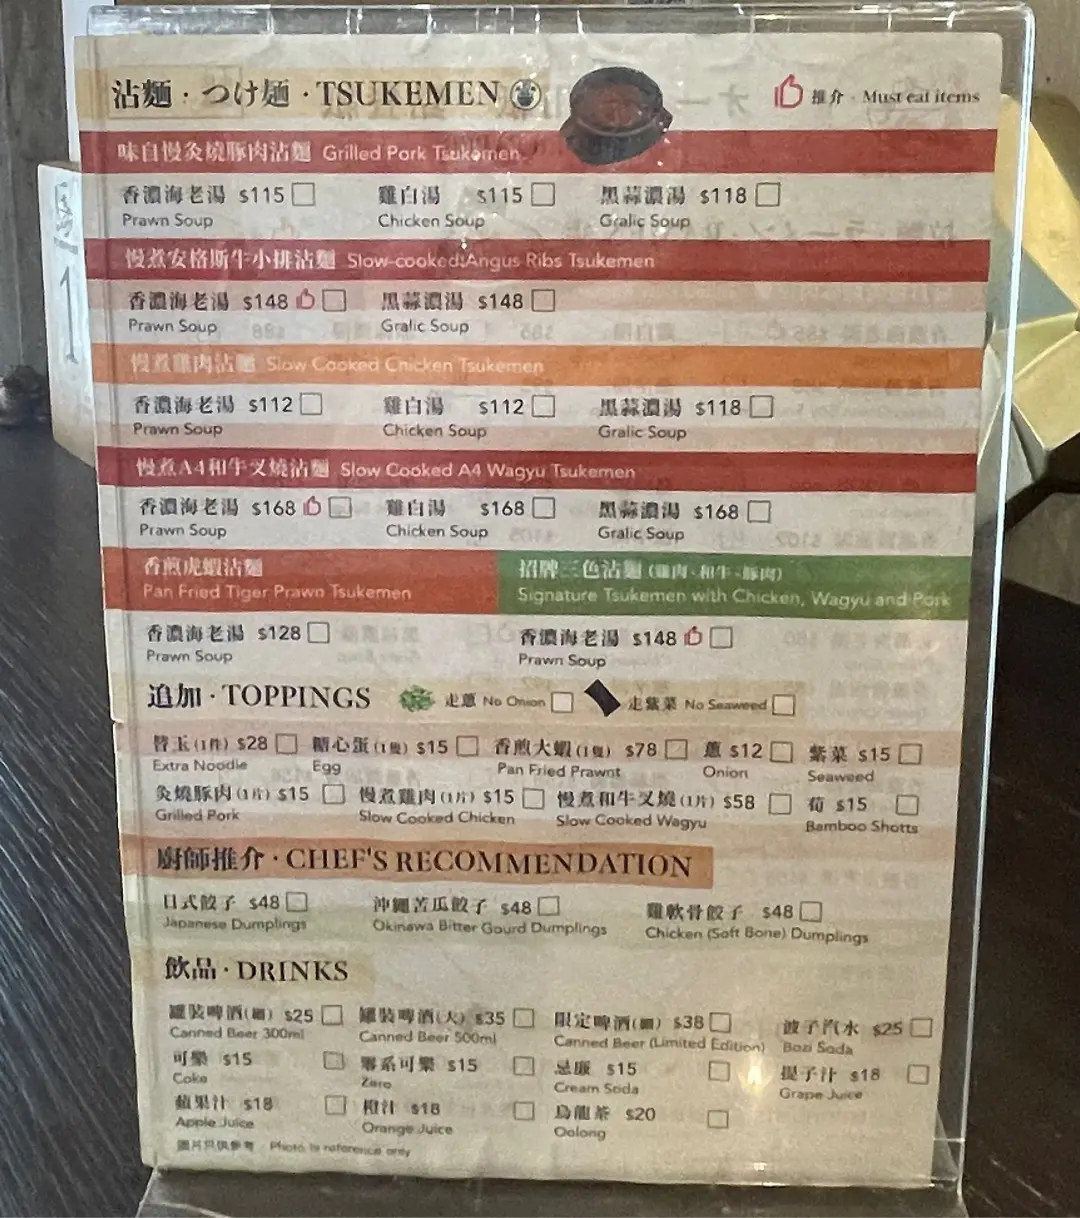 沾麵 · つけ麺 · TSUKEMEN 推介 · Must eat items
味自慢灸燒豚肉沾麵 Grilled Pork Tsukemen
香濃海老湯 $115 雞白湯 $115 黑蒜濃湯 $118
Prawn Soup Chicken Soup Gralic Soup
慢煮安格斯牛小排沾麵 Slow-cooked Angus Ribs Tsukemen
香濃海老湯 $148 黑蒜濃湯 $148
Prawn Soup Gralic Soup
慢煮雞肉沾麵 Slow Cooked Chicken Tsukemen
香濃海老湯 $112 雞白湯 $112 黑蒜濃湯 $118
Prawn Soup Chicken Soup Gralic Soup
慢煮A4和牛叉燒沾麵 Slow Cooked A4 Wagyu Tsukemen
香濃海老湯 $168 雞白湯 $168 黑蒜濃湯 $168
Prawn Soup Chicken Soup Gralic Soup
香煎虎蝦沾麵 招牌三色沾麵 (雞肉 · 和牛 · 豚肉)
Pan Fried Tiger Prawn Tsukemen Signature Tsukemen with Chicken, Wagyu and Pork
香濃海老湯 $128 香濃海老湯 $148
Prawn Soup Prawn Soup
追加 · TOPPINGS 走蔥 No Onion 走紫菜 No Seaweed
替玉(1件) $28 糖心蛋(1隻) $15 香煎大蝦(1隻) $78 蔥 $12 紫菜 $15
Extra Noodle Egg Pan Fried Prawnt Onion Seaweed
灸燒豚肉(1片) $15 慢煮雞肉(1片) $15 慢煮和牛叉燒(1片) $58 荀 $15
Grilled Pork Slow Cooked Chicken Slow Cooked Wagyu Bamboo Shotts
廚師推介 · CHEF'S RECOMMENDATION
日式餃子 $48 沖繩苦瓜餃子 $48 雞軟骨餃子 $48
Japanese Dumplings Okinawa Bitter Gourd Dumplings Chicken (Soft Bone) Dumplings
飲品 · DRINKS
罐裝啤酒(細) $25 罐裝啤酒(大) $35 限定啤酒(細) $38 波子汽水 $25
Canned Beer 300ml Canned Beer 500ml Canned Beer (Limited Edition) Bozi Soda
可樂 $15 零系可樂 $15 忌廉 $15 提子汁 $18
Coke Zero Cream Soda Grape Juice
蘋果汁 $18 橙汁 $18 烏龍茶 $20
Apple Juice Orange Juice Oolong
圖片只供參考 · Photo is reference only